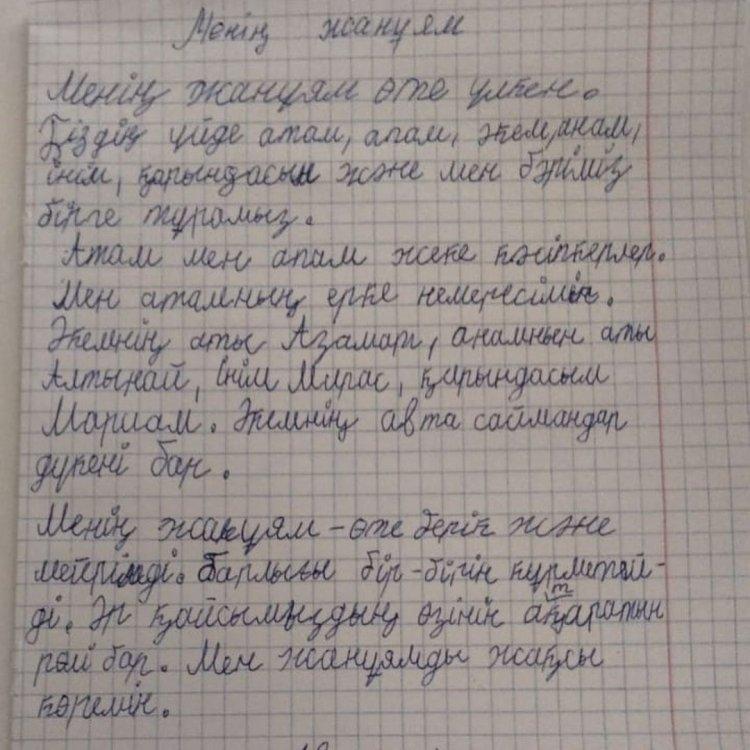 Менің жанұям
Менің жанұям өте үлкен.
Біздің үйде атам, апам, әкем, анам,
інім, қарындасым және мен бәріміз
бірге тұрамыз.
Атам мен апам жеке кәсіпкерлер.
Мен атамның ерке немересімін.
Әкемнің аты Азамат, анамның аты
Алтынай, Інім Мирас, қарындасым
Мариам. Әкемнің авта саймандар
дүкені бар.
Менің жанұям - өте берік және
мейірімді. Барлығы бір-бірін құрметтей-
ді. Әр қайсымыздың өзінің атқаратын
рөлі бар. Мен жанұямды жақсы
көремін.